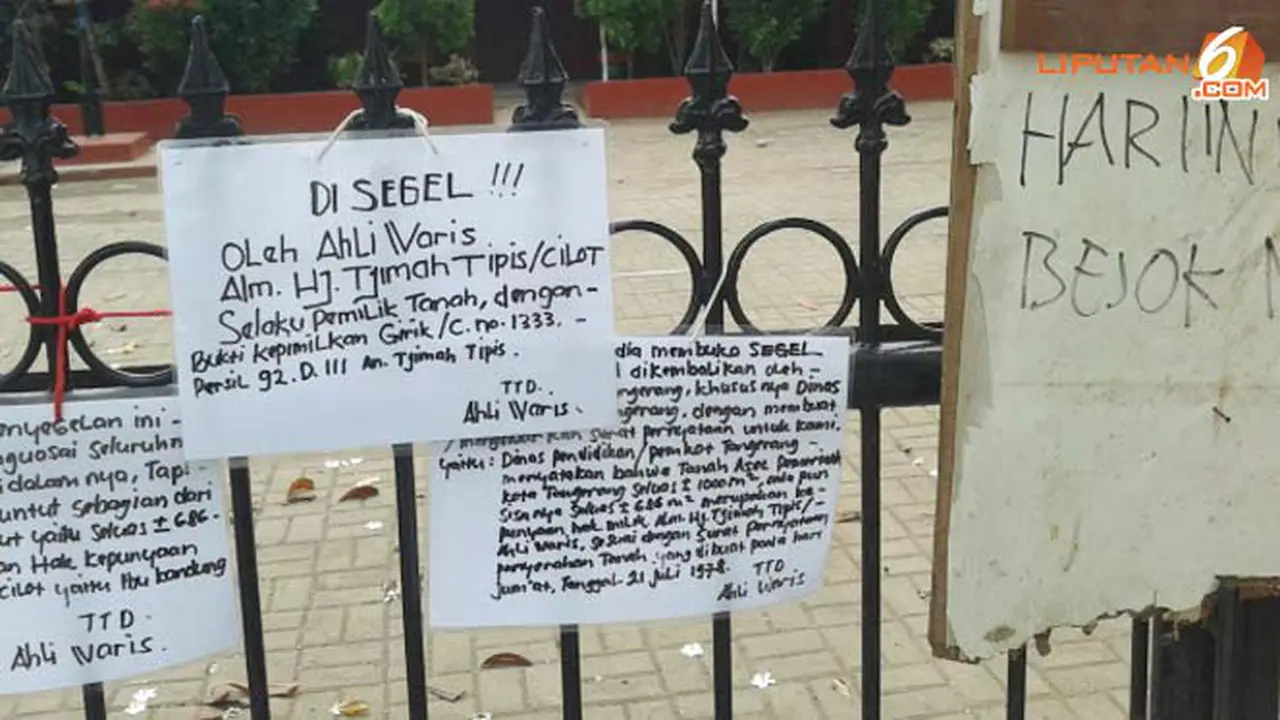 LIPUTAN 6 .COM
DI SEGEL !!!
OLeh AhLi Waris
Alm. Hj. Tjimah Tipis/CiLOT
Selaku PemiLik Tanah, dengan-
Bukti kepimiLkan Girik/C. no. 1333. -
Persil 92. D. III An. Tjimah Tipis.
TTD.
Ahli Waris.
enyegelan ini -
nguasai seluruhn
didalam nya, Tapi
untut sebagian dari
ut yaitu seluas ± 686.
an Hak kepunyaan
CiLot yaitu Ibu kandung
TTD.
Ahli Waris.
dia membuka SEGEL
dikembalikan oleh -
ngerang, khusus nya Dinas
gerang, dengan membuat
surat pernyataan untuk kami.
yaitu: Dinas pendidikan/pemkot Tangerang -
menyatakan bahwa Tanah Aset pemerintah
kota Tangerang seluas ± 1000 m², ada pun
sisa nya seluas ± 686 m² merupakan ke-
punyaan hak milik Alm. Hj. Tjimah Tipis/-
Ahli Waris, sesuai dengan surat pernyataan
penyerahan Tanah yang dibuat pada hari
Jum'at, Tanggal 21 juli 1978.
TTD
Ahli Waris
HARI IN
BEJOK